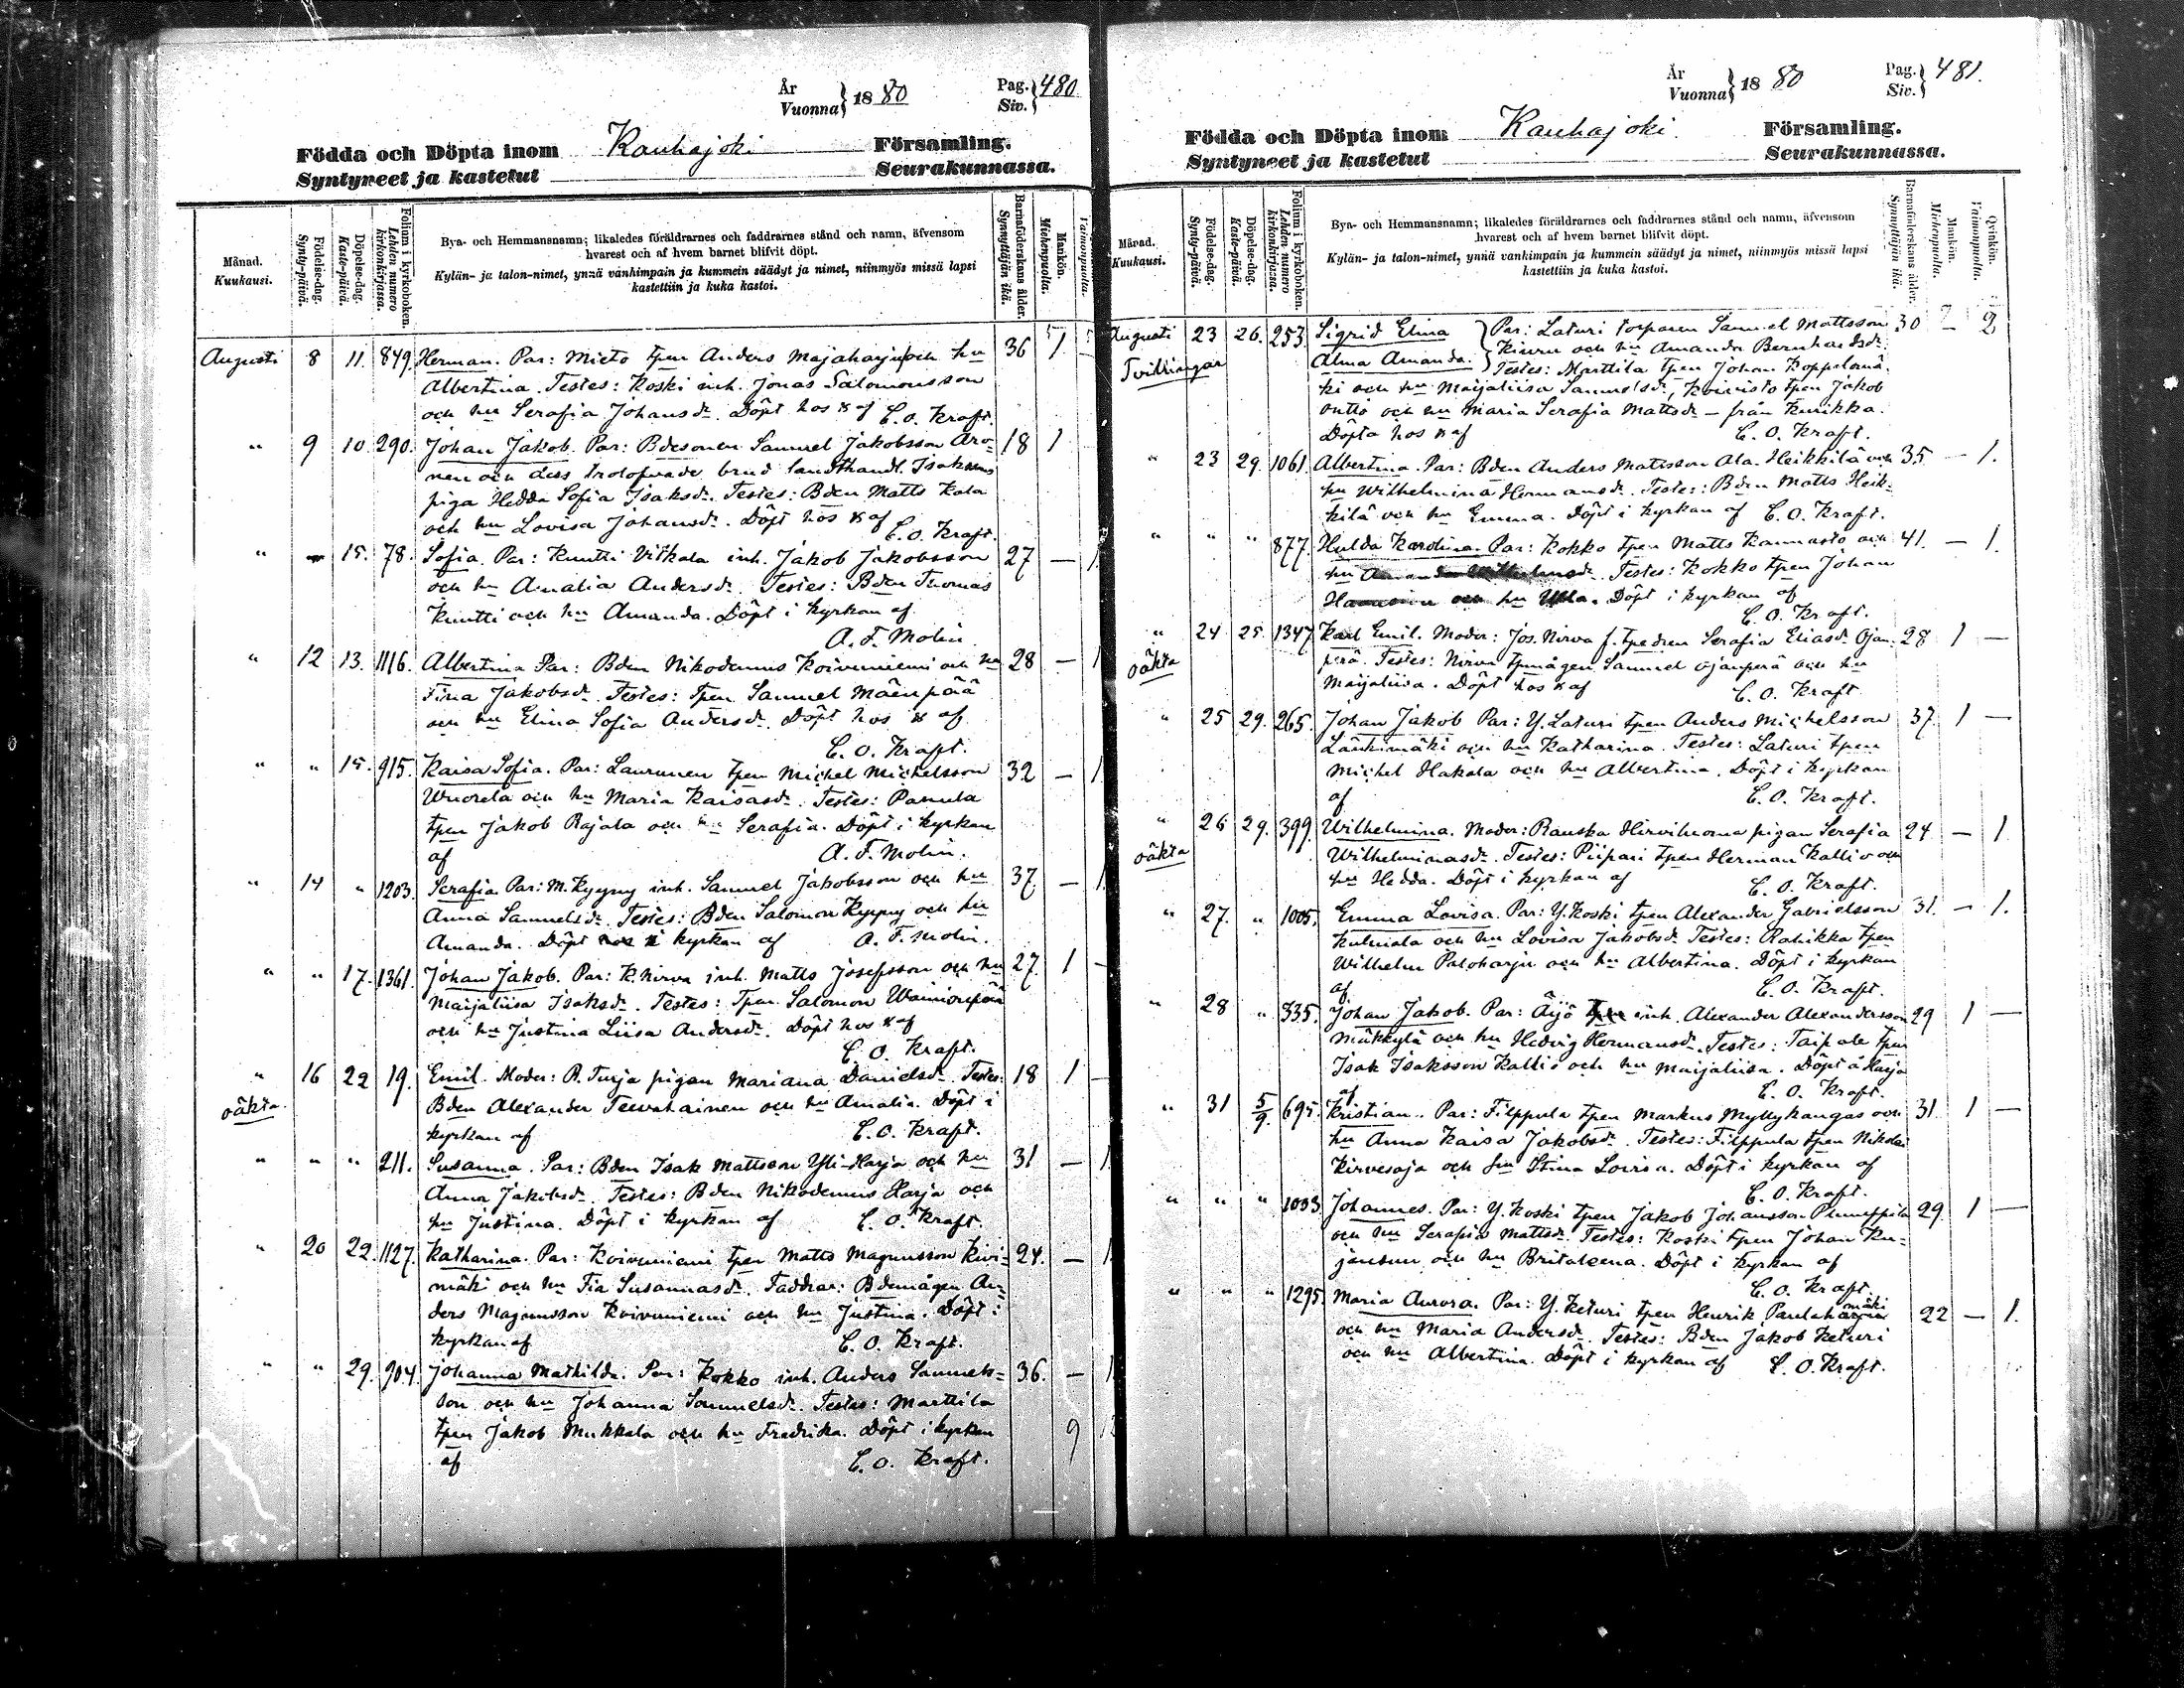 År
Vuonna } 1880
Pag.
Siv. } 480
Födda och Döpta inom Kauhajoki Församling.
Syntyneet ja kastetut Seurakunnassa.
Månad.
Kuukausi.
Födelse-dag.
Synty-päivä.
Döpelse-dag.
Kaste-päivä.
Folium i kyrkoboken.
Lehden numero
kirkonkirjassa.
Bya- och Hemmansnamn; likaledes föräldrarnes och faddrarnes stånd och namn, äfvensom
hvarest och af hvem barnet blifvit döpt.
Kylän- ja talon-nimet, ynnä vanhimpain ja kummein säädyt ja nimet, niinmyös missä lapsi
kastettiin ja kuka kastoi.
Barnaföderskans ålder.
Synnyttäjän ikä.
Mankön.
Miehenpuolia.
Vaimonpuolia.
Augusti 8 11. 849. Herman. Par: Mieto tpen Anders Majaharju och hu 36 1
Albertina. Testes: Koski inh. Jonas Salomonsson
och hu Serafia Johansdr. Döpt hos af C. O. Kraft.
" 9 10 290. Johan Jakob. Par: Bdesonen Samuel Jakobsson Aro- 18 1
nen och dess trolofvade brud landthandl. Isaksons
piga Hedda Sofia Isaksdr. Testes: Bden Matts Kala
och hu Lovisa Johansdr. Döpt hos af C. O. Kraft.
" 15. 78. Sofia. Par: Knutti Vitkala inh. Jakob Jakobsson 27 — 1
och hu Amalia Andersdr. Testes: Bden Thomas
Knutti och hu Amanda. Döpt i kyrkan af
A. F. Molin
" 12 13. 1116. Albertina Par: Bden Nikodemus Koivuniemi och hu 28 — 1
Fina Jakobsdr. Testes: Tpen Samuel Mäenpää
och hu Elina Sofia Andersdr. Döpt hos af
C. O. Kraft.
" " 15. 915. Kaisa Sofia. Par: Laurunen tpen Michel Michelsson 32 — 1
Wuorela och hu Maria Kaisasdr. Testes: Panula
tpen Jakob Rajala och hu Serafia. Döpt i kyrkan
af A. F. Molin.
" 14 " 1203. Serafia Par: M. Kyyny inh. Samuel Jakobsson och hu 37. — 1
Anna Samuelsdr. Testes: Bden Salomon Kyyny och hu
Amanda. Döpt i kyrkan af A. F. Molin.
" " 17. 1361. Johan Jakob. Par: K. Nirva inh. Matts Josefsson och hu 27. 1 —
Maijaliisa Isaksdr. Testes: Tpen Salomon Wainionpää
och hu Justina Liisa Andersdr. Döpt hos af
C. O. Kraft.
" 16 22 19. Emil. Moder: P. Turja pigan Mariana Danielsdr. Testes: 18 1 —
oäkta. Bden Alexander Teevahainen och hu Amalia. Döpt i
kyrkan af C. O. Kraft.
" " " 211. Susanna. Par: Bden Isak Mattsson Yli-Harja och hu 31 — 1
Anna Jakobsdr. Testes: Bden Nikodemus Harja och
hu Justina. Döpt i kyrkan af C. O. Kraft.
" 20 22. 1127. Katharina. Par: Koivuniemi tpen Matts Magnusson Kivi- 24. — 1
mäki och hu Fia Susannasdr. Faddrar: Bdemågen An-
ders Magnusson Koivuniemi och hu Justina. Döpt i
kyrkan af C. O. Kraft.
" " 29. 904. Johanna Mathilda. Par: Kokko inh. Anders Samuels- 36. — 1
son och hu Johanna Samuelsdr. Testes: Marttila
tpen Jakob Mukkala och hu Fredrika. Döpt i kyrkan 9
af C. O. Kraft.
År
Vuonna } 1880
Pag.
Siv. } 481.
Födda och Döpta inom Kauhajoki. Församling.
Syntyneet ja kastetut Seurakunnassa.
Månad.
Kuukausi.
Födelse-dag.
Synty-päivä.
Döpelse-dag.
Kaste-päivä.
Folium i kyrkoboken.
Lehden numero
kirkonkirjassa.
Bya- och Hemmansnamn; likaledes föräldrarnes och faddrarnes stånd och namn, äfvensom
hvarest och af hvem barnet blifvit döpt.
Kylän- ja talon-nimet, ynnä vanhimpain ja kummein säädyt ja nimet, niinmyös missä lapsi
kastettiin ja kuka kastoi.
Barnaföderskans ålder.
Synnyttäjän ikä.
Mankön.
Miehenpuolia.
Qvinkön.
Vaimonpuolia.
Augusti 23 26. 253. Sigrid Elina } Par: Laturi torparen Samuel Mattsson 30 — 2
Tvillingar Alma Amanda. } Kiuru och hu Amanda Bernhardsdr.
Testes: Marttila tpen Johan Koppelomä-
ki och hu Maijaliisa Samuelsdr, Koivisto tpen Jakob
Ontto och hu Maria Serafia Mattsdr — från Kurikka.
Döpta hos af C. O. Kraft.
" 23 29. 1061. Albertina. Par: Bden Anders Mattsson Ala-Heikkilä och 35 — 1.
hu Wilhelmina Hermansdr. Testes: Bden Matts Heik-
kilä och hu Emma. Döpt i kyrkan af C. O. Kraft.
" " " 877. Hulda Karolina. Par: Kokko tpen Matts Kannasto och 41. — 1.
hu Testes: Kokko tpen Johan
och hu Ulla. Döpt i kyrkan af
C. O. Kraft.
" 24 25. 1347. Karl Emil. Moder: Jos. Nirva f. tpedren Serafia Eliasdr. Ojan- 28 1 —
oäkta perä. Testes: Nirva tpmågen Samuel Ojanperä och hu
Maijaliisa. Döpt hos af C. O. Kraft.
" 25 29. 265. Johan Jakob Par: Y. Laturi tpen Anders Michelsson 37. 1 —
Länkimäki och hu Katharina. Testes: Laturi tpen
Michel Hakala och hu Albertina. Döpt i kyrkan
af C. O. Kraft.
" 26 29. 399. Wilhelmina. Moder: Rauska Hirvihuoma pigan Serafia 24 — 1
oäkta Wilhelminasdr. Testes: Piipari tpen Herman Kallio och
hu Hedda. Döpt i kyrkan af C. O. Kraft.
" 27. " 1005. Emma Lovisa. Par: Y. Koski tpen Alexander Gabrielsson 31. — 1.
och hu Lovisa Jakobsdr. Testes: Rahikka tpen
Wilhelm Paloharju och hu Albertina. Döpt i kyrkan
af C. O. Kraft.
" 28 " 335. Johan Jakob. Par: Äijö inh. Alexander Alexandersson 29 1 —
Mäkkylä och hu Hedvig Hermansdr. Testes: Taipale tpen
Isak Isaksson Kallio och hu Maijaliisa. Döpt å Harja
af C. O. Kraft.
" 31 5/9. 695. Kristian. Par: Filppula tpen Markus Myllykangas och 31. 1 —
hu Anna Kaisa Jakobsdr. Testes: Filppula tpen Nikolai
Kirvesoja och hu Stina Lovisa. Döpt i kyrkan af
C. O. Kraft.
" " " 1003. Johannes. Par: Y. Koski tpen Jakob Johansson 29. 1 —
och hu Serafia Mattsdr. Testes: Koski tpen Johan Ku-
janen och hu Britaleena. Döpt i kyrkan af
C. O. Kraft.
" " " 1295. Maria Aurora. Par: Y. Keturi tpen Henrik mäki 22 — 1.
och hu Maria Andersdr. Testes: Bden Jakob Keturi
och hu Albertina. Döpt i kyrkan af C. O. Kraft.